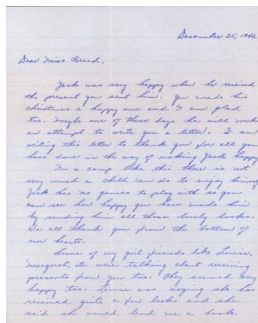 December 25, 1942
Dear Miss Breed,
Jack was very happy when he received
the present you sent him. You made his
Christmas a happy one and I am glad
too. Maybe one of these days he will make
an attempt to write you a letter. I am
writing this letter to thank you for all you
have done in the way of making Jack happy.
In a camp like this there is not
very much a child can do to enjoy himself.
Jack has no games to play with so you
can see how happy you have made him
by sending him all those lovely books.
We all thank you from the bottom of
our hearts.
Some of my girl friends like Louise,
Margaret, etc were talking about receiving
presents from you too. They seemed very
happy too. Louise was saying she has
received quite a few books and she
said she would lend me a book